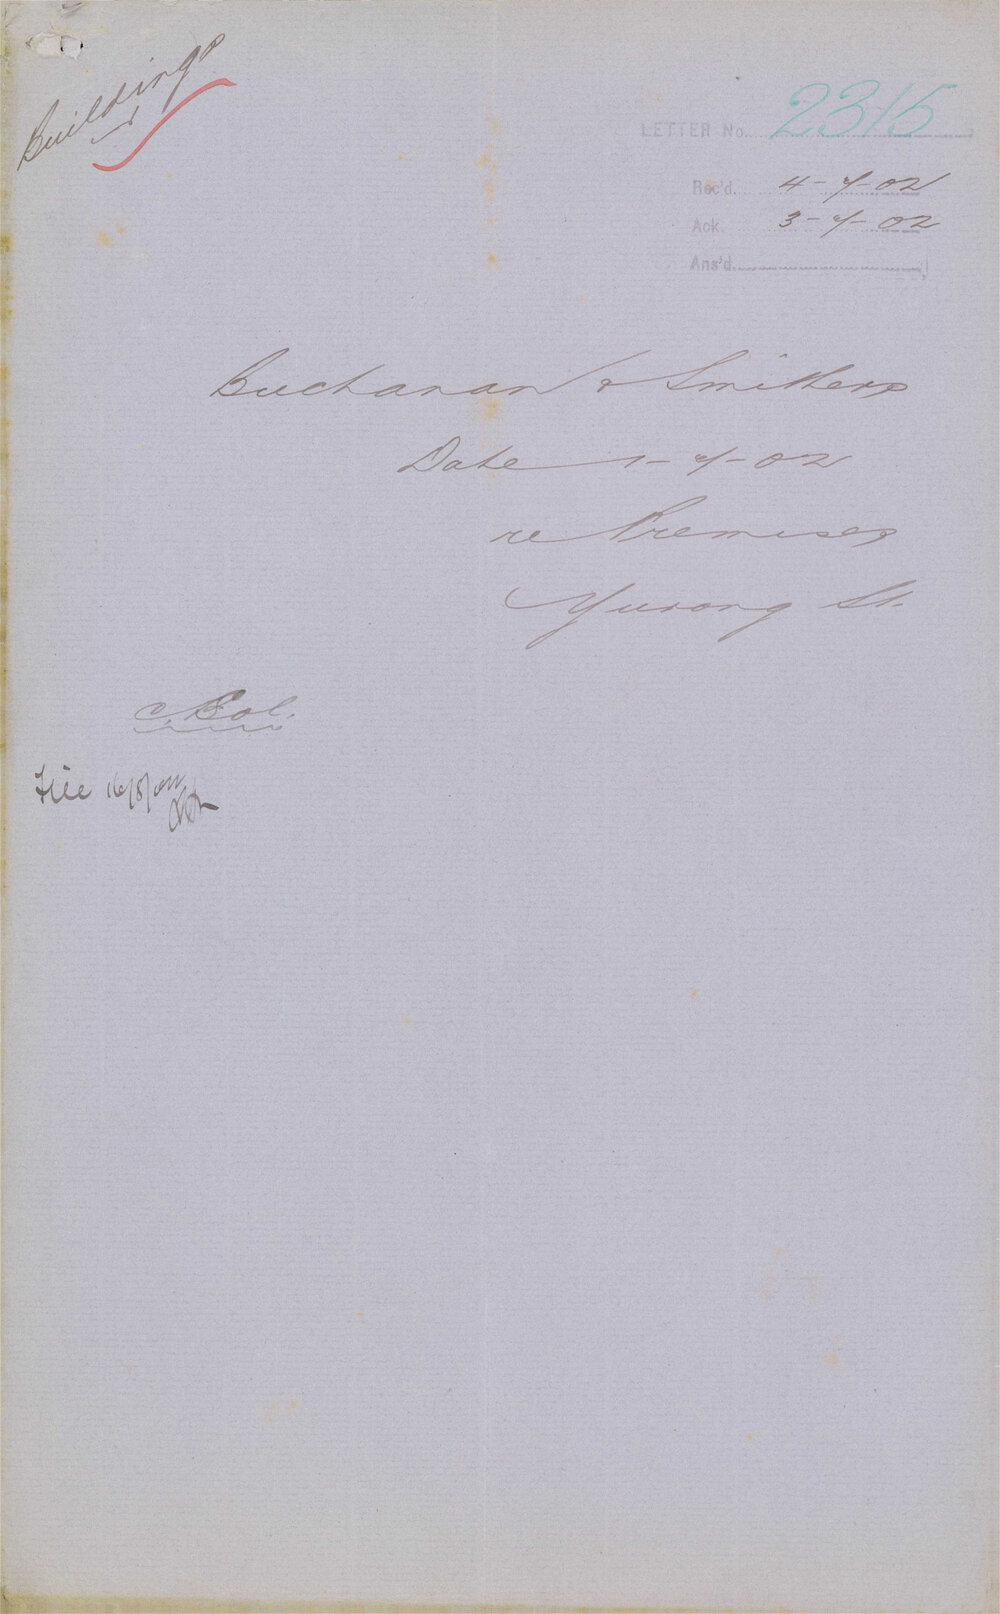 Buildings
LETTER No. 2315
Rec'd. 4-7-02
Ack. 3-7-02
Ans'd.
Buchanan & Smithers
Date 1-7-02
re Premises
Yurong St.
File 16/8/02